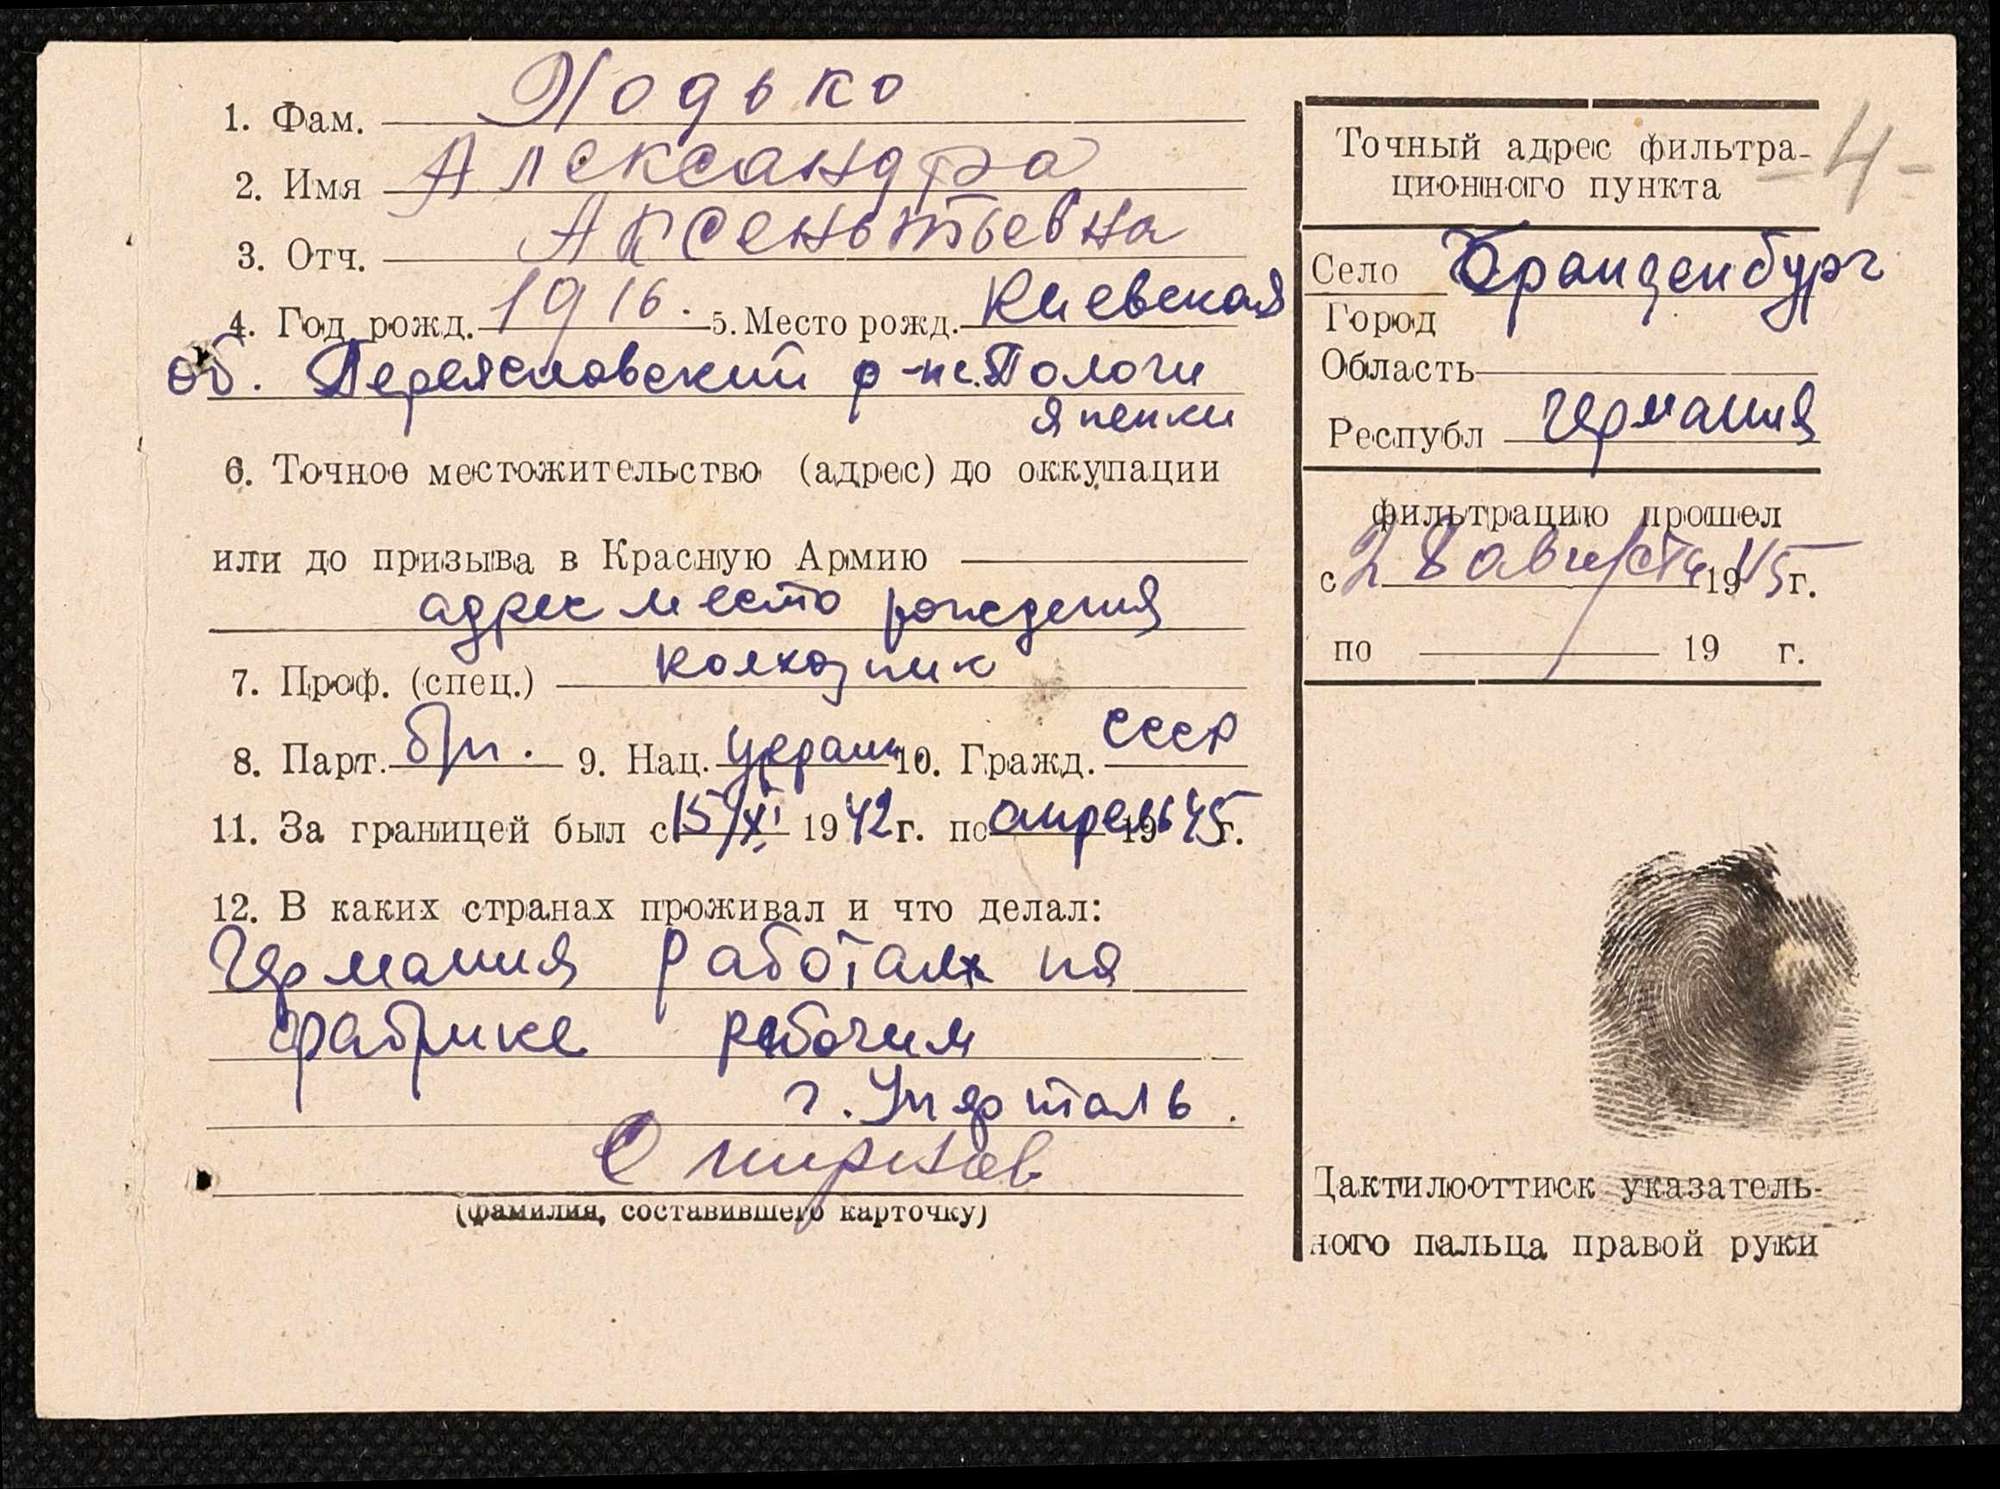 1. Фам. Ходько
2. Имя Александра
3. Отч. Аксентьевна
4. Год рожд. 1916. 5. Место рожд. Киевская
об. Переяславский р-н с. Пологи
япенки
6. Точное местожительство (адрес) до оккупации
или до призыва в Красную Армию
адрес место рождения
7. Проф. (спец.) колхозник
8. Парт. б/п. 9. Нац. украин 10. Гражд. СССР
11. За границей был с 15/XI 1942 г. по апрель 1945 г.
12. В каких странах проживал и что делал:
Германия работал на
фабрике рабочим
г.
Смирнов
(фамилия, составившего карточку)
Точный адрес фильтра-
ционного пункта
-4-
Село Бранденбург
Город
Область
Республ Германия
фильтрацию прошел
с 28 августа 1945 г.
по 19 г.
Дактилооттиск указатель-
ного пальца правой руки